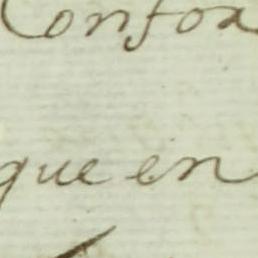 Confor
que en